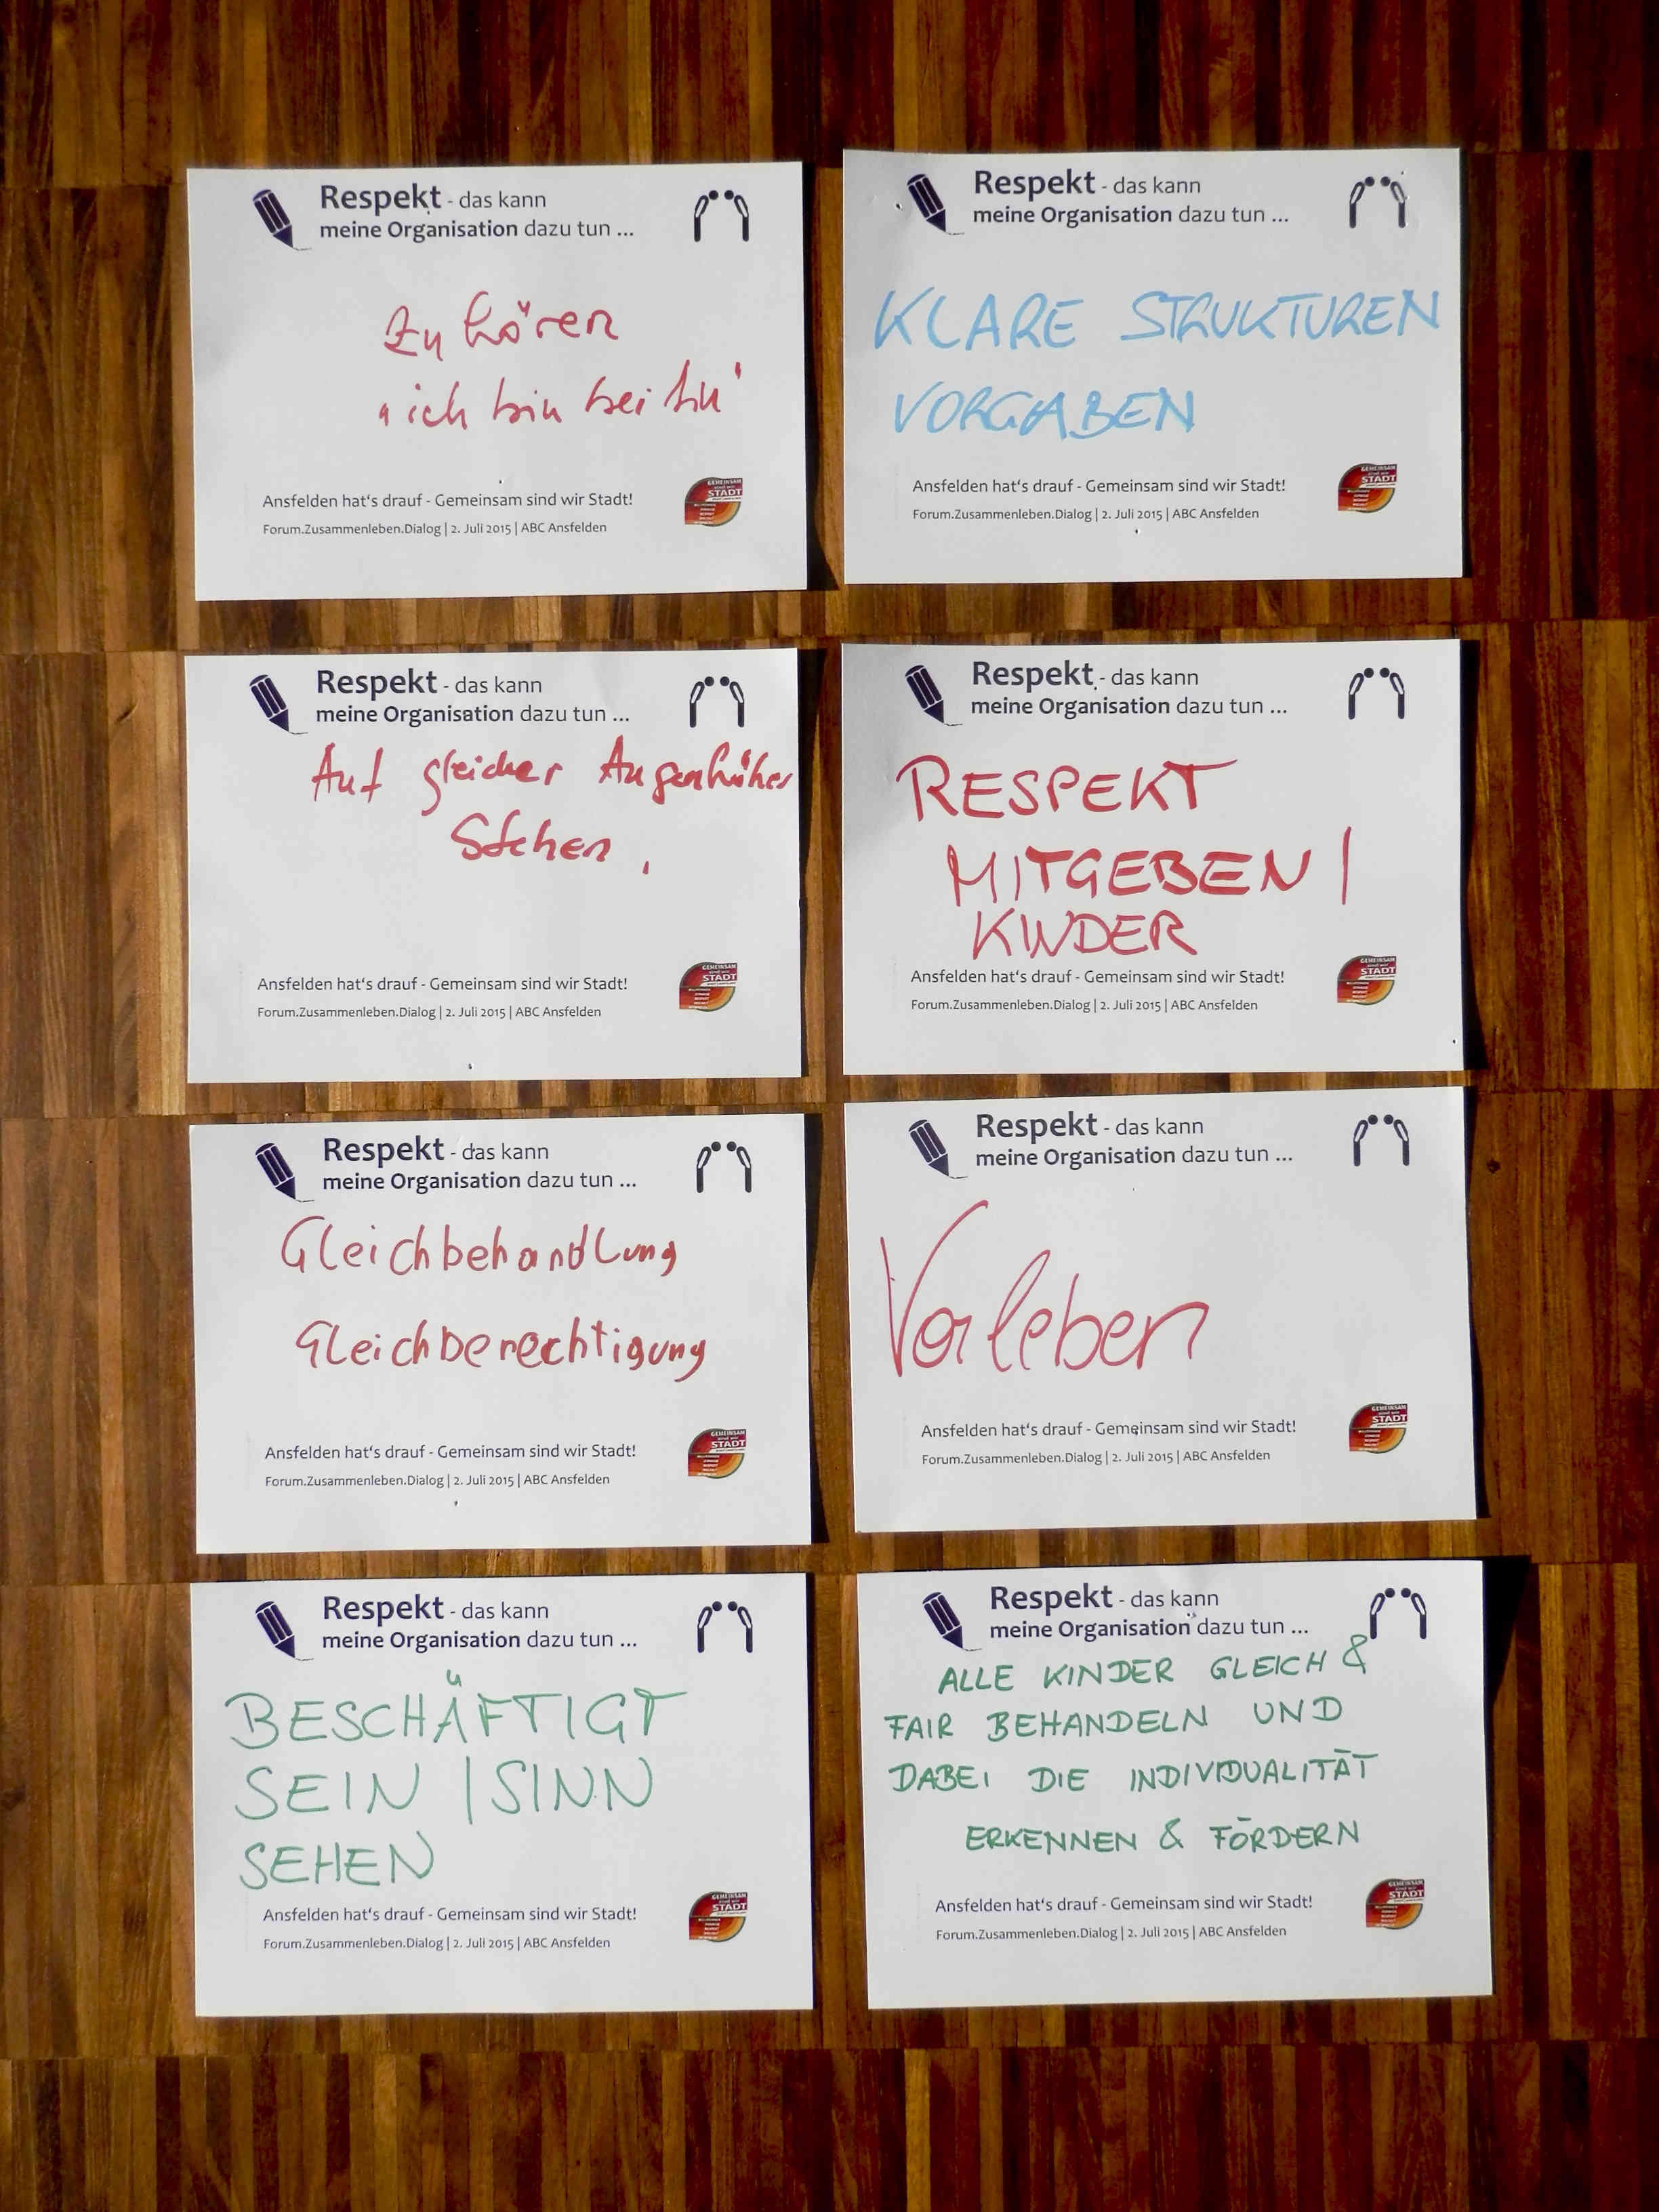 Respekt - das kann
meine Organisation dazu tun ...
Zu hören
"ich bin bei
Ansfelden hat's drauf - Gemeinsam sind wir Stadt!
Forum.Zusammenleben.Dialog | 2. Juli 2015 | ABC Ansfelden
GEMEINSAM
sind wir
STADT
Respekt - das kann
meine Organisation dazu tun ...
KLARE STRUKTUREN
VORGABEN
Ansfelden hat's drauf - Gemeinsam sind wir Stadt!
Forum.Zusammenleben.Dialog | 2. Juli 2015 | ABC Ansfelden
GEMEINSAM
sind wir
STADT
Respekt - das kann
meine Organisation dazu tun ...
Auf gleicher
Stehen.
Ansfelden hat's drauf - Gemeinsam sind wir Stadt!
Forum.Zusammenleben.Dialog | 2. Juli 2015 | ABC Ansfelden
GEMEINSAM
sind wir
STADT
Respekt - das kann
meine Organisation dazu tun ...
RESPEKT
MITGEBEN |
KINDER
Ansfelden hat's drauf - Gemeinsam sind wir Stadt!
Forum.Zusammenleben.Dialog | 2. Juli 2015 | ABC Ansfelden
GEMEINSAM
sind wir
STADT
Respekt - das kann
meine Organisation dazu tun ...
Gleichbehandlung
Gleichberechtigung
Ansfelden hat's drauf - Gemeinsam sind wir Stadt!
Forum.Zusammenleben.Dialog | 2. Juli 2015 | ABC Ansfelden
GEMEINSAM
sind wir
STADT
Respekt - das kann
meine Organisation dazu tun ...
Vorleben
Ansfelden hat's drauf - Gemeinsam sind wir Stadt!
Forum.Zusammenleben.Dialog | 2. Juli 2015 | ABC Ansfelden
GEMEINSAM
sind wir
STADT
Respekt - das kann
meine Organisation dazu tun ...
BESCHÄFTIGT
SEIN | SINN
SEHEN
Ansfelden hat's drauf - Gemeinsam sind wir Stadt!
Forum.Zusammenleben.Dialog | 2. Juli 2015 | ABC Ansfelden
GEMEINSAM
sind wir
STADT
Respekt - das kann
meine Organisation dazu tun ...
ALLE KINDER GLEICH &
FAIR BEHANDELN UND
DABEI DIE INDIVIDUALITÄT
ERKENNEN & FÖRDERN
Ansfelden hat's drauf - Gemeinsam sind wir Stadt!
Forum.Zusammenleben.Dialog | 2. Juli 2015 | ABC Ansfelden
GEMEINSAM
sind wir
STADT